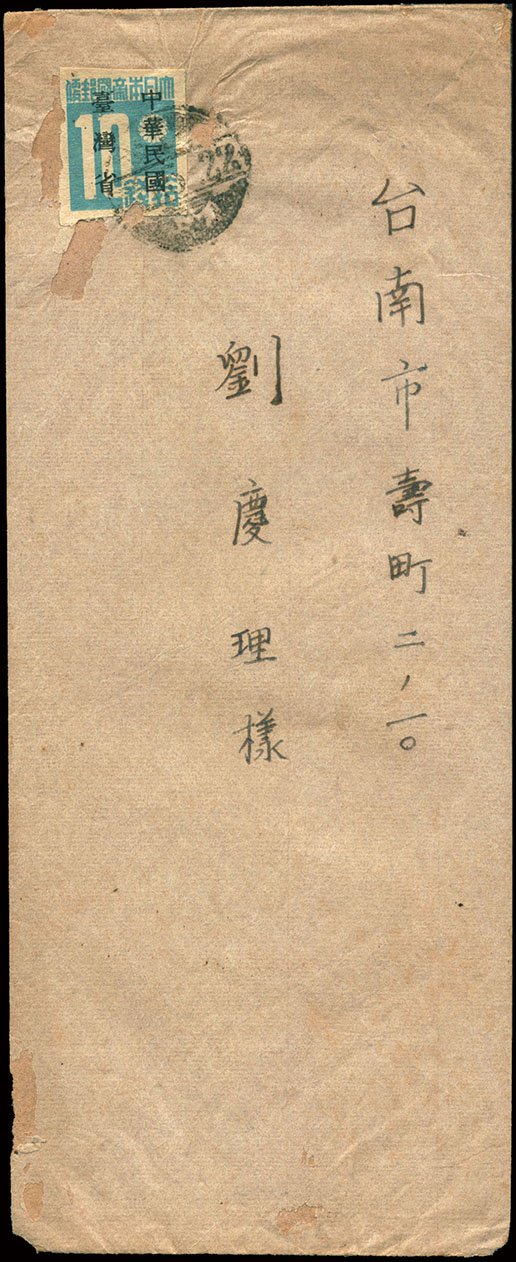 台南市壽町二ノ一〇
劉慶理様
大日本帝國郵便
中華民國
臺灣省
10
拾錢
22